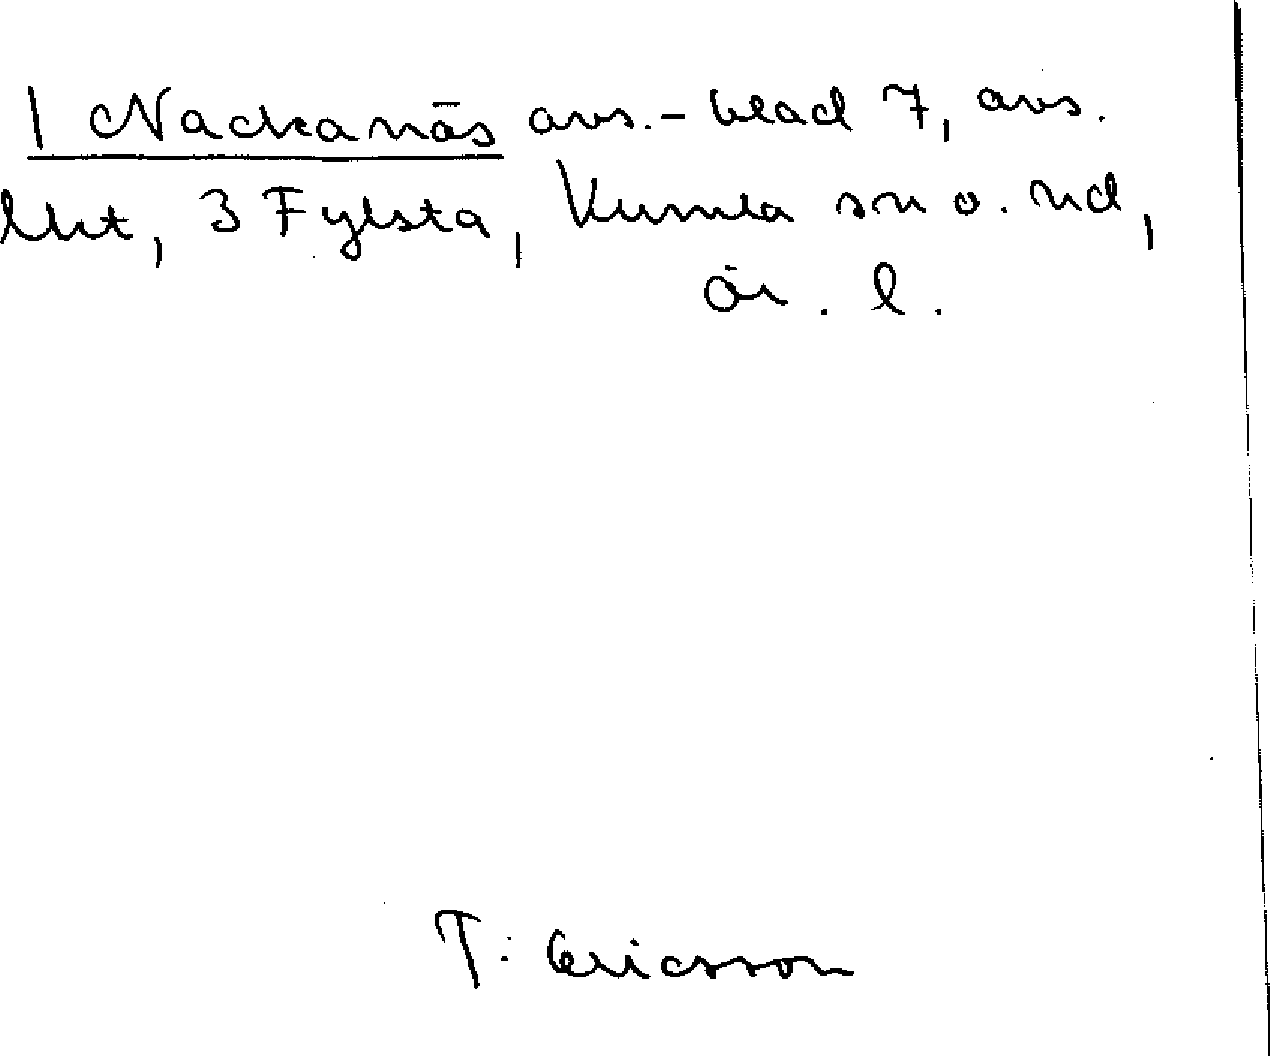 1 Nackanäs avs.-blad 7, avs.
lht, 3 Fylsta, Kumla sn o. hd,
är. l.
T. Ericsson